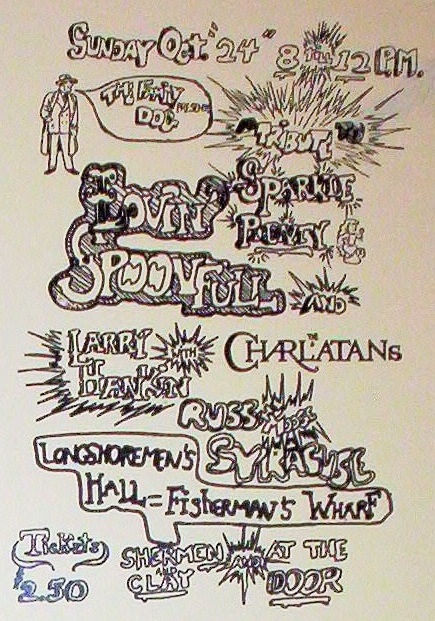 SUNDAY OCT. "24" 8 TILL 12 P.M.
THE FAMILY
DOG
A "TRIBUTE" TO
SPARKLE
PLENTY &
LOVIN'
SPOONFULL AND
LARRY
HANKIN WITH THE CHARLATANS
RUSS MOOSE
SYRACUSE
LONGSHOREMEN'S
HALL = FISHERMAN'S WHARF
TICKETS
$2.50
SHERMEN
CLAY AND AT THE
DOOR